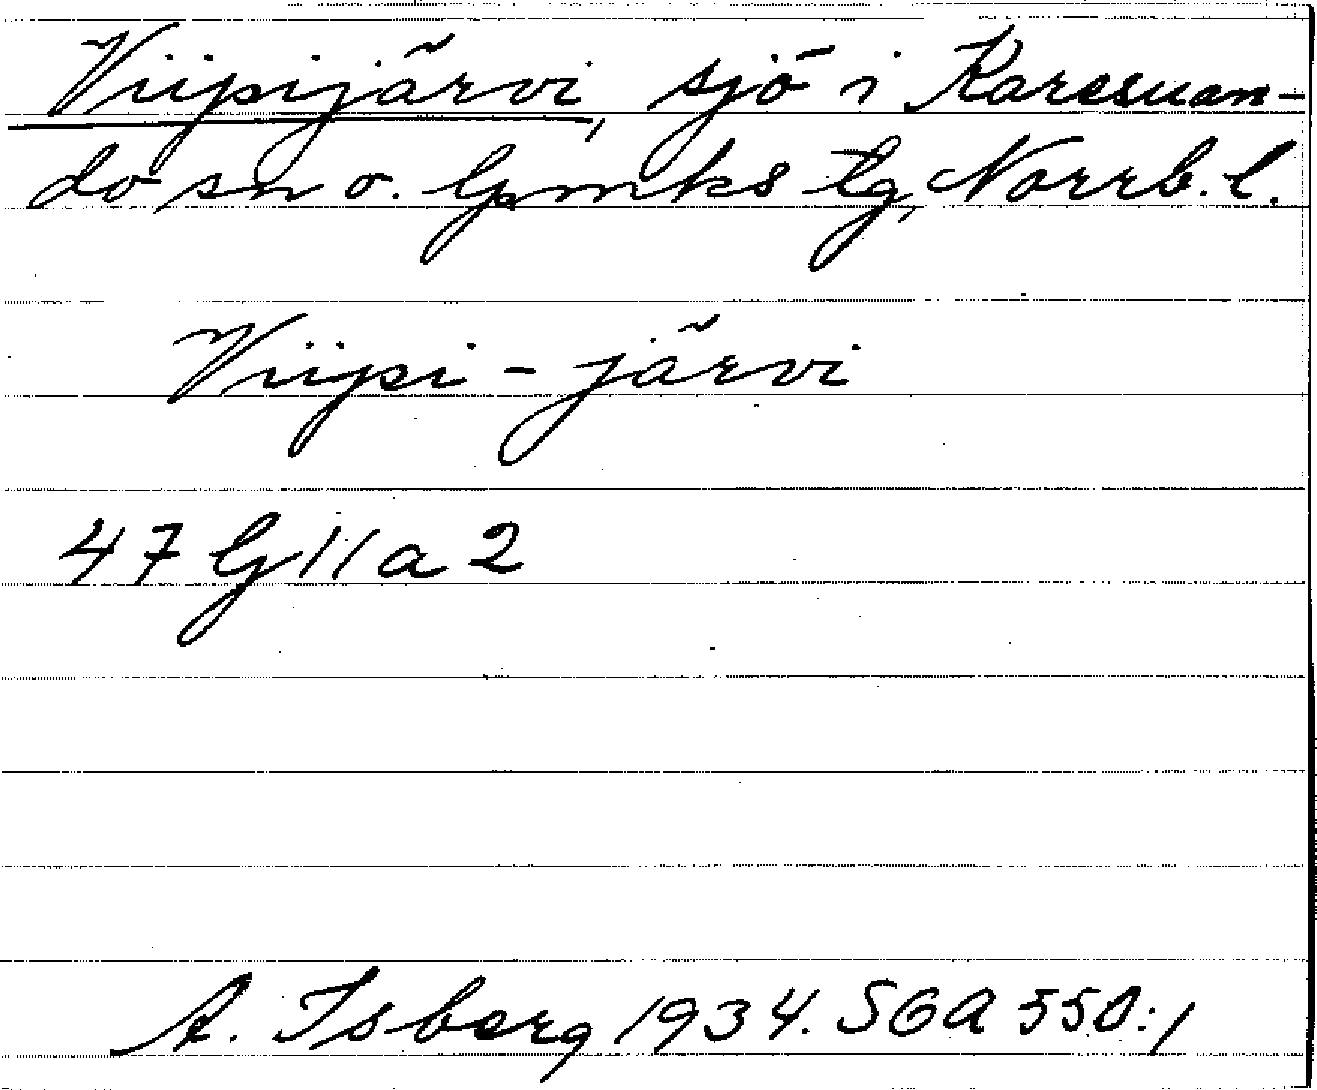 Viipijärvi, sjö i Karesuan-
do sn o. lpmks tg, Norrb. l.
Viipi - järvi
47 G 11 a 2
A. Isberg 1934. SGA 550:1